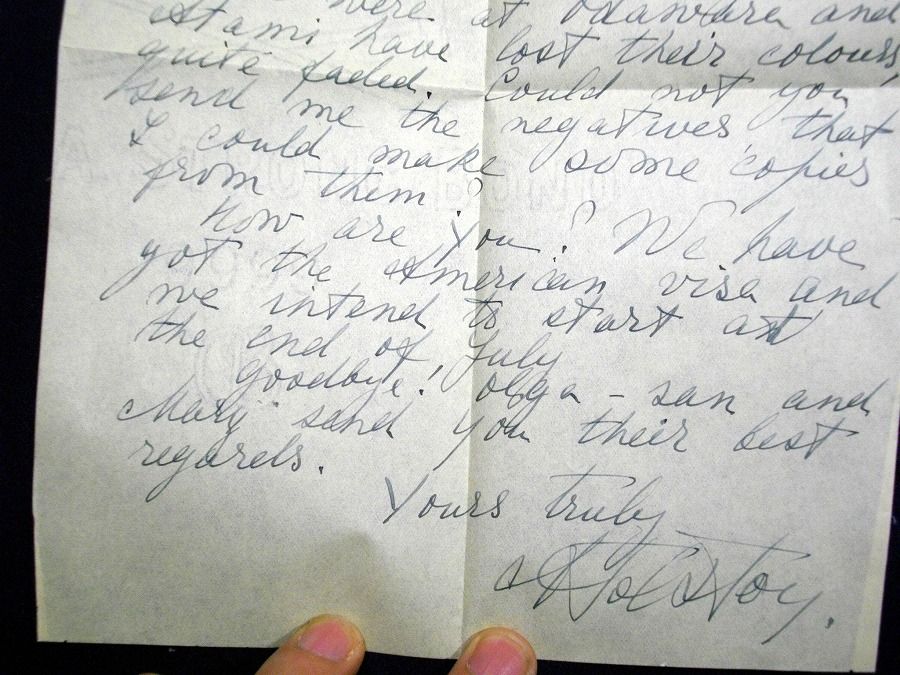 were at Odawara and
Atami have lost their colours,
quite faded. Could not you
send me the negatives that
I could make some copies
from them?
How are you? We have
got the American visa and
we intend to start at
the end of July
goodbye! Olga-san and
Mary send you their best
regards.
Yours truly
A Tolstoy.